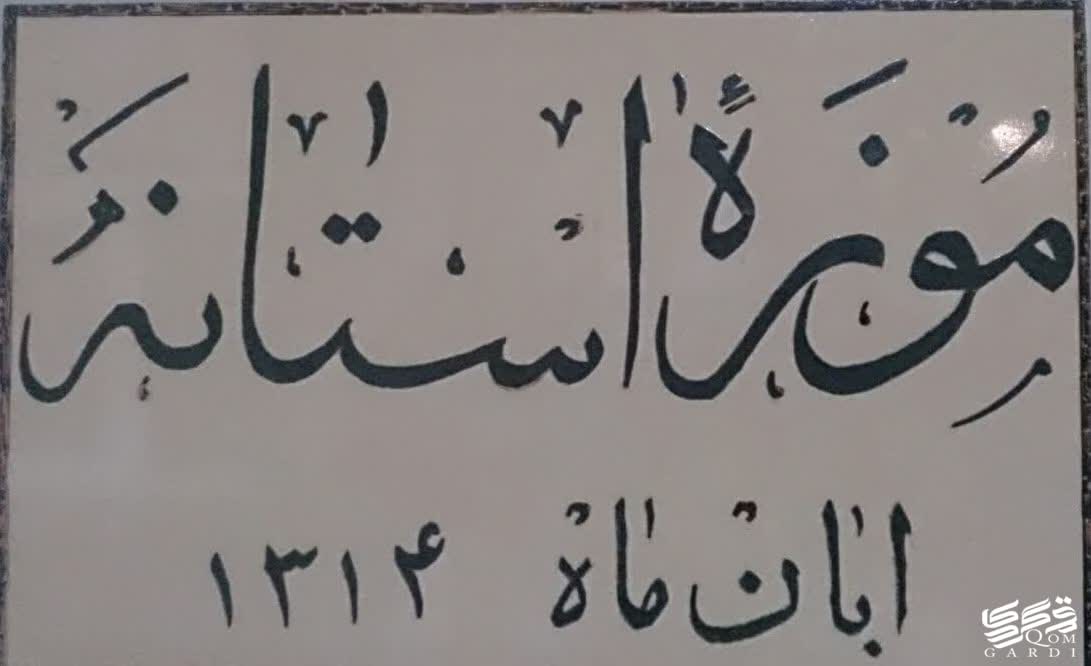 موزهٔ استانه
ابان ماه ۱۳۱۴
QOM
GARDI